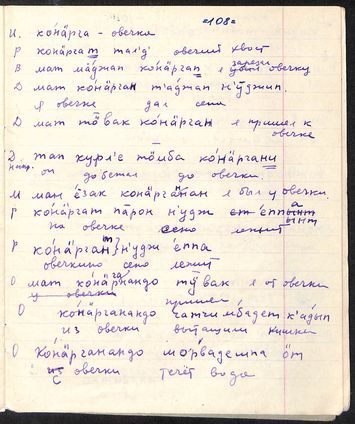 =108=
И. ко́нӓрга - овечка
Р конӓргат талд' овечий хвост
В мат маджап конӓргап я зарезал овечку
Д мат конӓрган т'аджап н'ӱджип.
я овечке дал сена
Д мат тӧвак ко́нӓрган я пришел к
овечке
Д тап курл'е тӧмба ко́нӓргани
он добежал до овечки.
М ман е́зак конӓрганнан я был у овечки.
Р конӓргат па̄рон н'удж еппынт
на овечке сено лежит
Р конӓргат} н'удж е́ппа
овечкино сено лежит
О мат конӓрганандо тӱвак я от овечки
у овечки пришел
О конӓрганандо чатчимбадет к'адып
из овечки вытащили кишки
О Конӓрганандо мо́рвадемпа ӧт
с овечки течёт вода